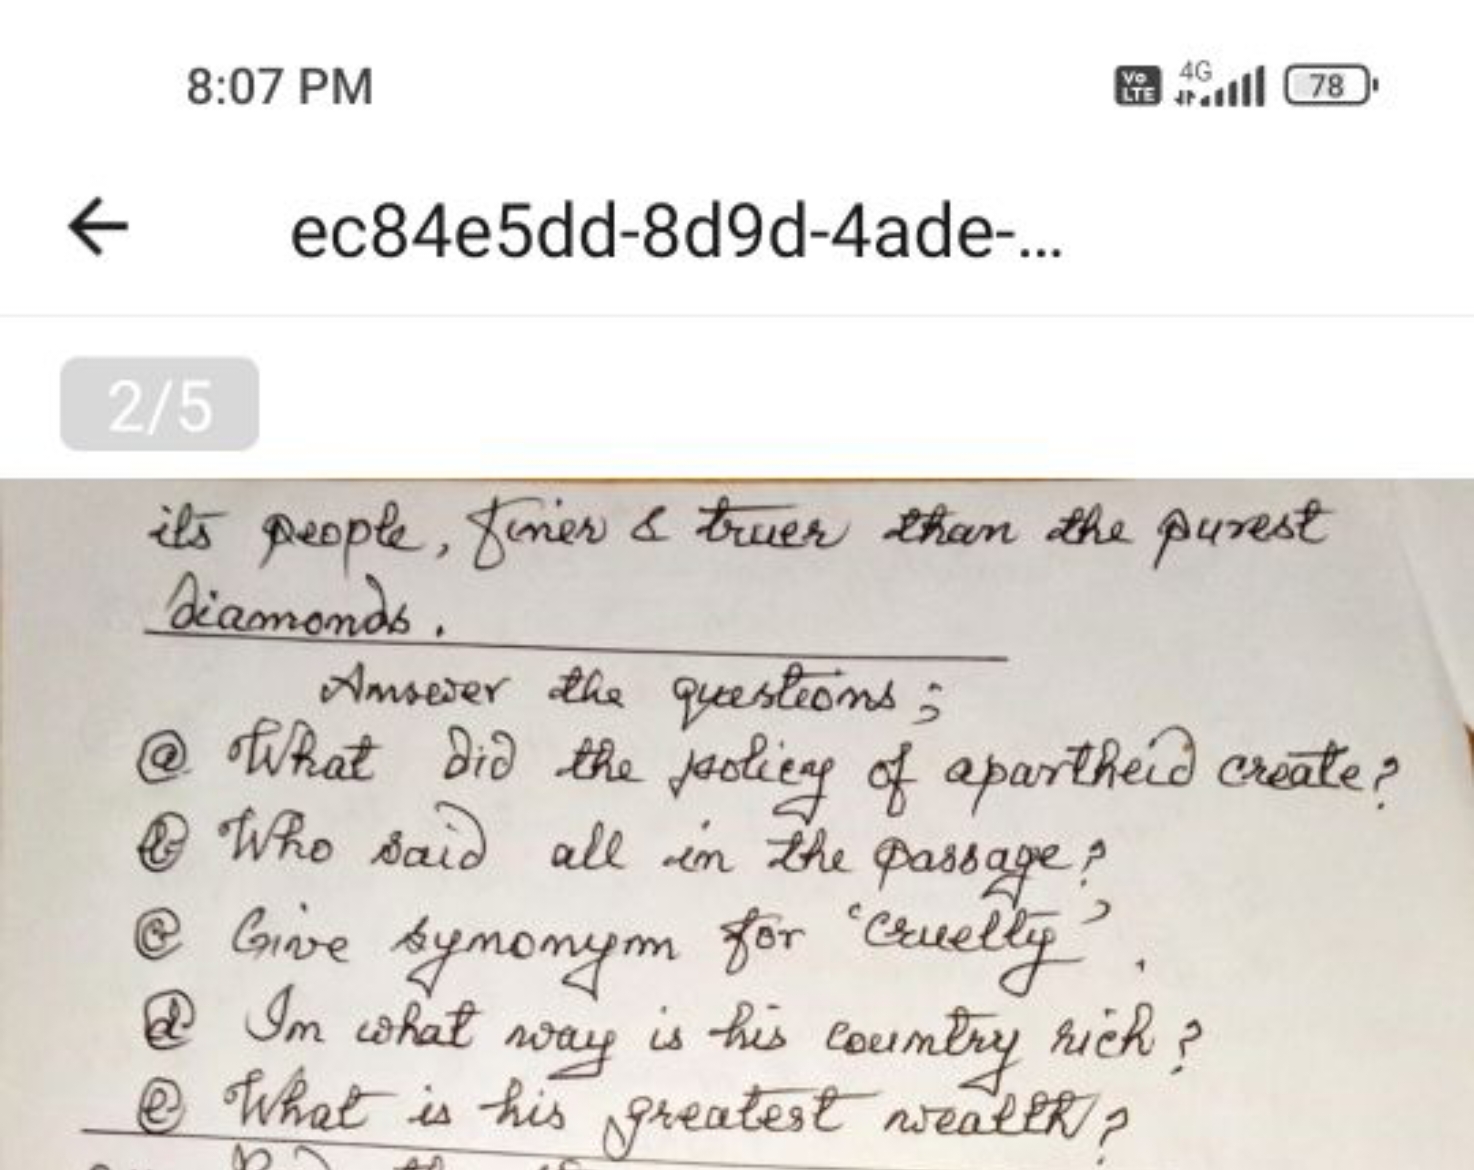 8:07 PM Vo LTE 4G 78
ec84e5dd-8d9d-4ade-...
2/5
its people, finer & truer than the purest
diamonds.
Answer the questions;
(a) What did the policy of apartheid create?
(b) Who said all in the passage?
(c) Give synonym for 'Cruelty'.
(d) In what way is his country rich?
(e) What is his greatest wealth?